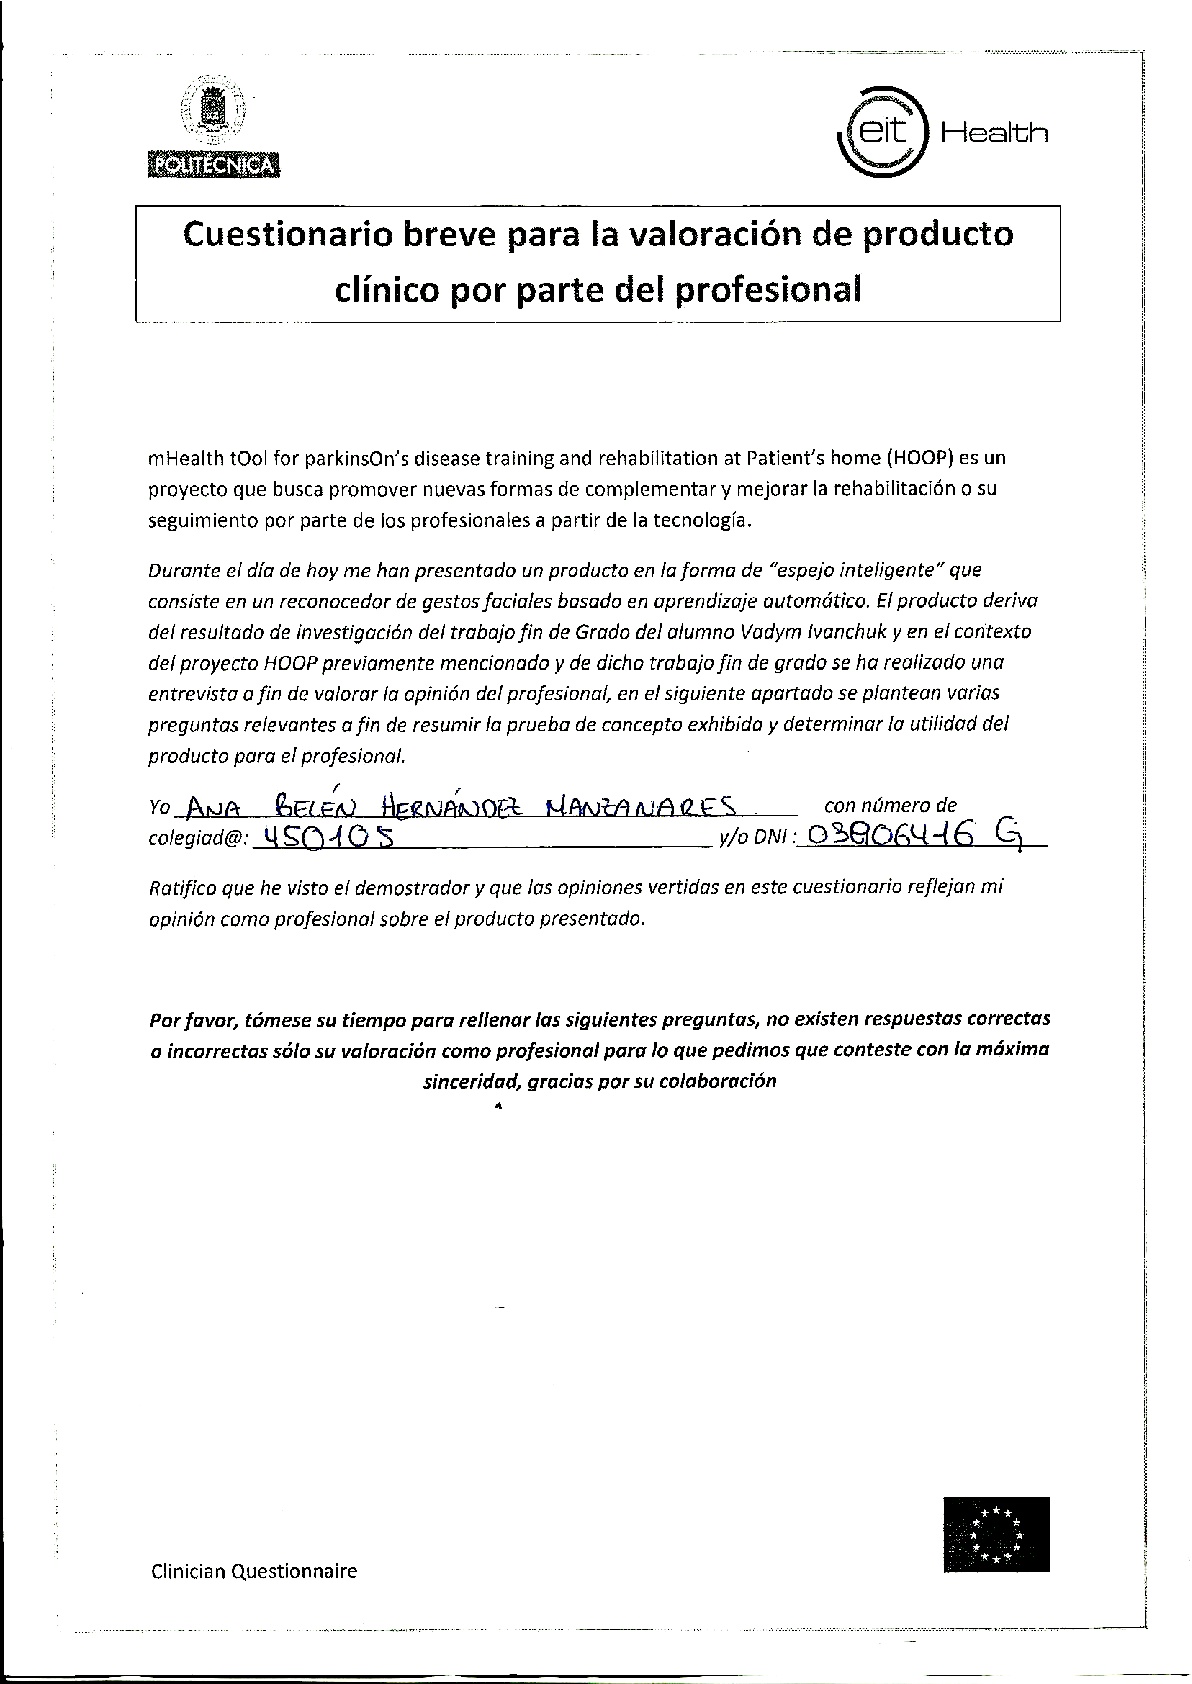 POLITÉCNICA
eit Health
Cuestionario breve para la valoración de producto
clínico por parte del profesional
mHealth tOol for parkinsOn's disease training and rehabilitation at Patient's home (HOOP) es un
proyecto que busca promover nuevas formas de complementar y mejorar la rehabilitación o su
seguimiento por parte de los profesionales a partir de la tecnología.
Durante el día de hoy me han presentado un producto en la forma de "espejo inteligente" que
consiste en un reconocedor de gestos faciales basado en aprendizaje automático. El producto deriva
del resultado de investigación del trabajo fin de Grado del alumno Vadym Ivanchuk y en el contexto
del proyecto HOOP previamente mencionado y de dicho trabajo fin de grado se ha realizado una
entrevista a fin de valorar la opinión del profesional, en el siguiente apartado se plantean varias
preguntas relevantes a fin de resumir la prueba de concepto exhibida y determinar la utilidad del
producto para el profesional.
Yo ANA BELÉN HERNÁNDEZ MANZANARES con número de
colegiad@: 450105 y/o DNI: 03806416 G
Ratifico que he visto el demostrador y que las opiniones vertidas en este cuestionario reflejan mi
opinión como profesional sobre el producto presentado.
Por favor, tómese su tiempo para rellenar las siguientes preguntas, no existen respuestas correctas
o incorrectas sólo su valoración como profesional para lo que pedimos que conteste con la máxima
sinceridad, gracias por su colaboración
Clinician Questionnaire